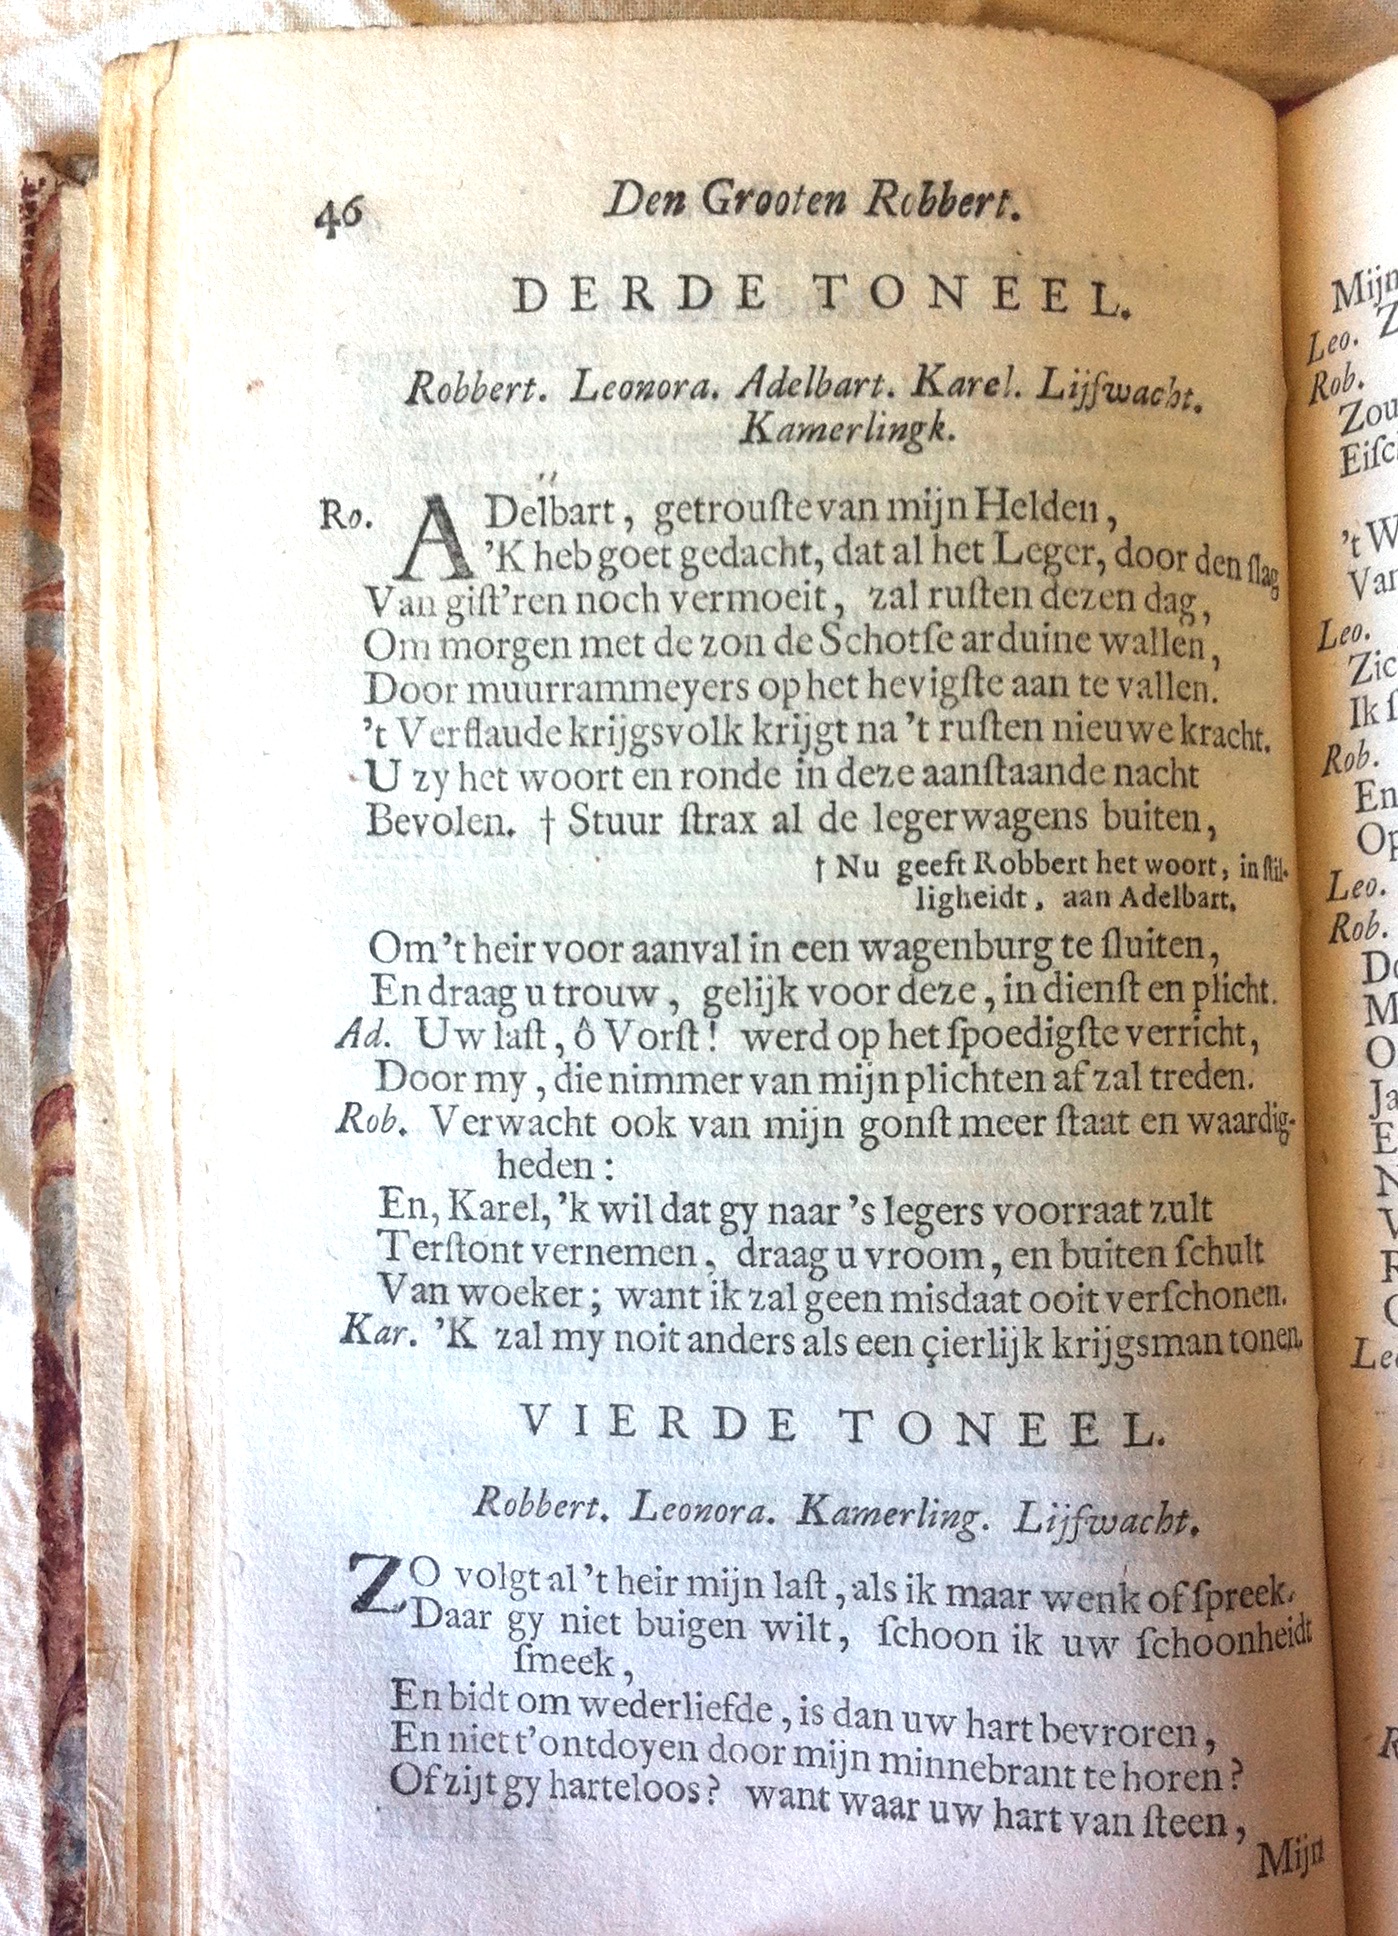 46 Den Grooten Robbert.
DERDE TONEEL.
Robbert. Leonora. Adelbart. Karel. Lijfwacht.
Kamerlingk.
Ro. ADelbart, getrouſte van mijn Helden,
'K heb goet gedacht, dat al het Leger, door den ſlag
Van giſt'ren noch vermoeit, zal ruſten dezen dag,
Om morgen met de zon de Schotſe arduine wallen,
Door muurrammeyers op het hevigſte aan te vallen.
't Verflaude krijgsvolk krijgt na 't ruſten nieuwe kracht.
U zy het woort en ronde in deze aanſtaande nacht
Bevolen. † Stuur ſtrax al de legerwagens buiten,
† Nu geeft Robbert het woort, in ſtil-
ligheidt, aan Adelbart.
Om 't heir voor aanval in een wagenburg te ſluiten,
En draag u trouw, gelijk voor deze, in dienſt en plicht.
Ad. Uw laſt, ô Vorſt! werd op het ſpoedigſte verricht,
Door my, die nimmer van mijn plichten af zal treden.
Rob. Verwacht ook van mijn gonſt meer ſtaat en waardig-
heden:
En, Karel, 'k wil dat gy naar 's legers voorraat zult
Terſtont vernemen, draag u vroom, en buiten ſchult
Van woeker; want ik zal geen misdaat ooit verſchonen.
Kar. 'K zal my noit anders als een çierlijk krijgsman tonen.
VIERDE TONEEL.
Robbert. Leonora. Kamerling. Lijfwacht.
ZO volgt al 't heir mijn laſt, als ik maar wenk of ſpreek.
Daar gy niet buigen wilt, ſchoon ik uw ſchoonheidt
ſmeek,
En bidt om wederliefde, is dan uw hart bevroren,
En niet t'ontdoyen door mijn minnebrant te horen?
Of zijt gy harteloos? want waar uw hart van ſteen,
Mijn
Leo.
Rob.
Zou
't W
Van
Leo.
Zic
Rob.
En
Leo.
Rob.